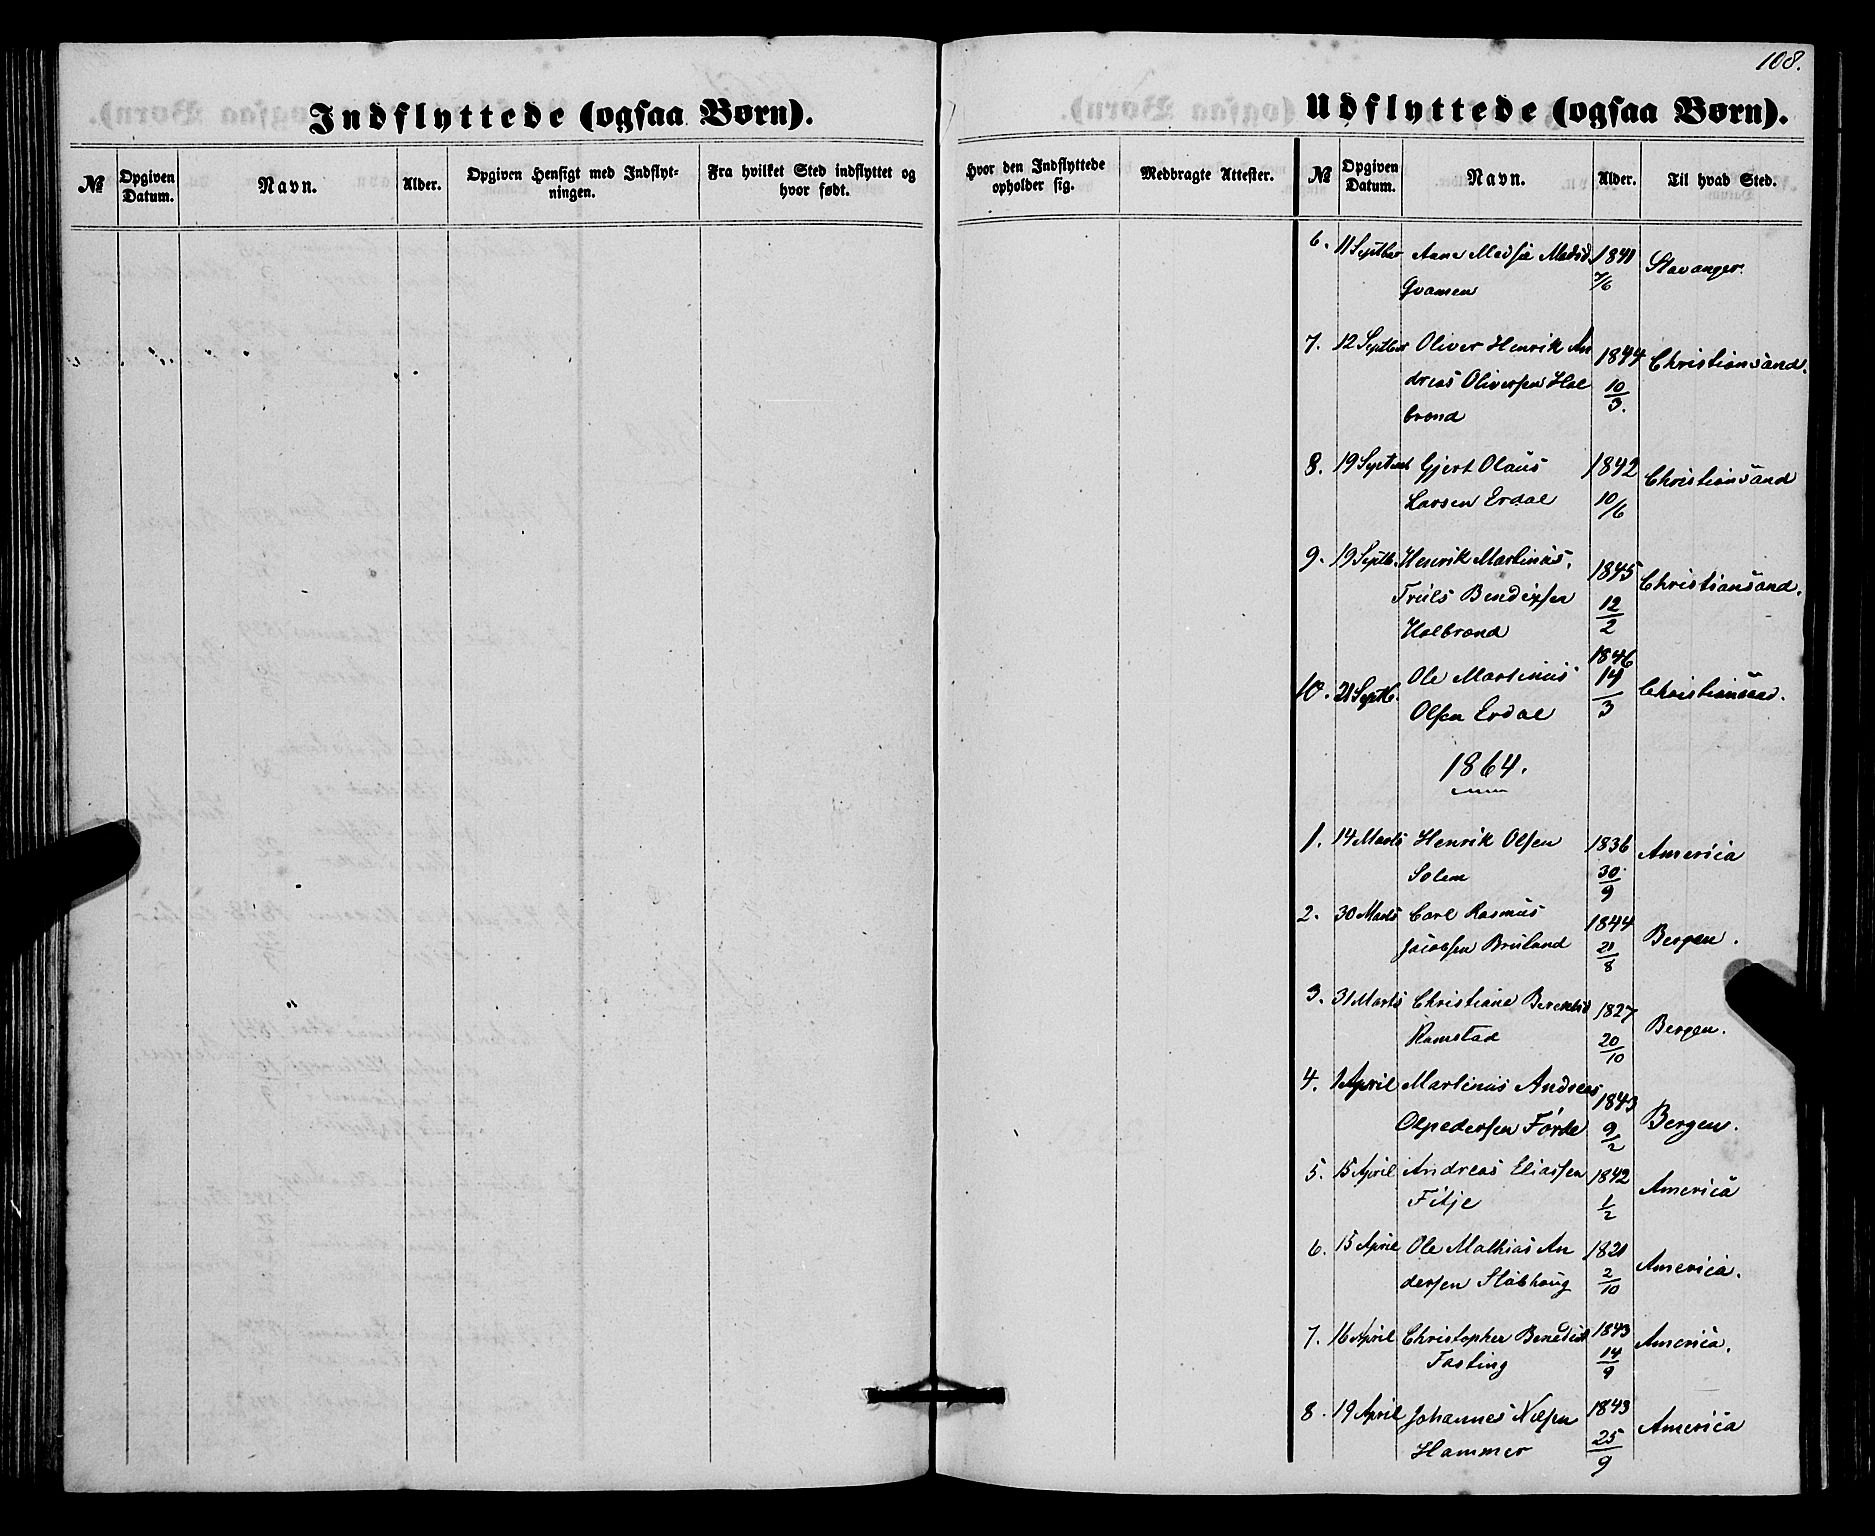 108.
Indflyttede (ogsaa Børn).
№
Opgiven Datum.
Navn.
Alder.
Opgiven Hensigt med Indflyt-
ningen.
Fra hvilket Sted indflyttet og
hvor født.
Udflyttede (ogsaa Børn).
Hvor den Indflyttede
opholder sig.
Medbragte Attester.
№
Opgiven Datum.
Navn.
Alder.
Til hvad Sted.
6. 11 Septber Anne 1841 Stavanger
7/6
7. 12 Septber Oliver Henrik An 1844 Christiansand.
dreas Oliversen Hal 10/3.
brand
8. 19 Septemb Gjert Olaus 1842 Christiansand
Larsen Erdal 10/6
9. 19 Septb. Henrik Martinus, 1845 Christiansand.
Truls Bendixsen 12/2
Halbrand
10. 21 Septb. Ole Martinus 1846 Christiansand.
Olsen Erdal 14/3
1864.
1. 14 Marts Henrik Olsen 1836 America
Solem 30/9
2. 30 Marts Carl Rasmus 1844 Bergen.
Jacobsen Bruland 21/8
3. 31 Marts Christiane 1827 Bergen.
Ramstad 20/10
4. 1 April Martinus Andreas 1843 Bergen.
Olpedersen Førde 9/2
5. 15 April Andreas Eliassen 1842 America
Fitje 1/2
6. 15 April Ole Mathias An 1821 America.
dersen Støbhoug 2/10
7. 16 April Christopher Benedict 1843 America.
Fasting 14/9
8. 19 April Johannes 1843 America
Hammer 25/9